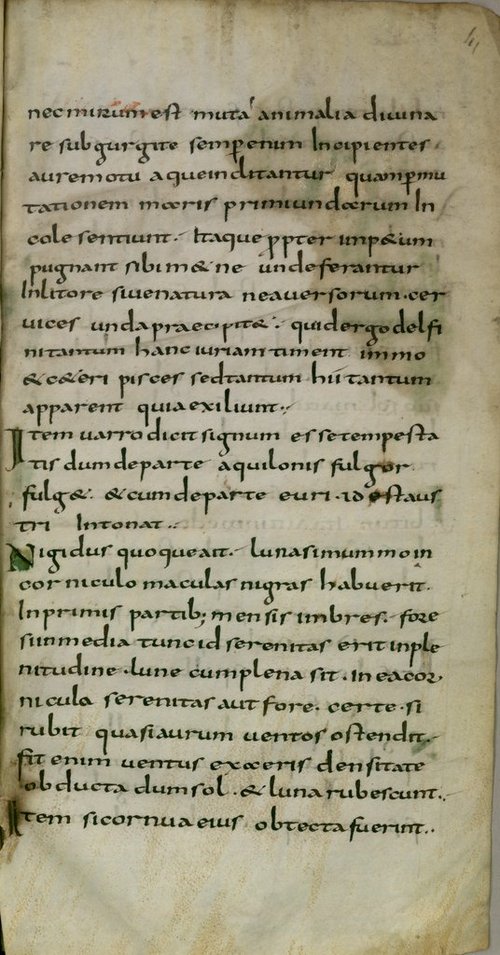 41
nec mirum est muta animalia divina
re sub gurgite semper enim Incipientes
aure motu aque inditantur quam permu
tationem maeris primi undaerum In
cole sentiunt. Itaque propter imp&um
pugnant sibi m&ne unde ferantur
In litore sive natura ne aversorum. cer
vices unda praecipit&. quid ergo delfi
ni tantum hanc iuriam timent immo
& c&eri pisces sed tantum hii tantum
apparent quia exiliunt.
Item varro dicit signum esse tempesta
tis dum de parte aquilonis fulgor
fulg&. & cum de parte euri. id est aus
tri Intonat.
Nigidus quoque ait. luna si mummo in
corniculo maculas nigras habuerit.
In primis partib; mensis imbres. fore
si inmedia tunc id serenitas erit in ple
nitudine. lune cum plena sit. in ea cor
niculo serenitas aut fore. certe. si
rubit quasi aurum ventos ostendit.
fit enim ventus ex aeris densitate
obducta dum sol. & luna rubescunt.
Item si cornua eius obtecta fuerint.